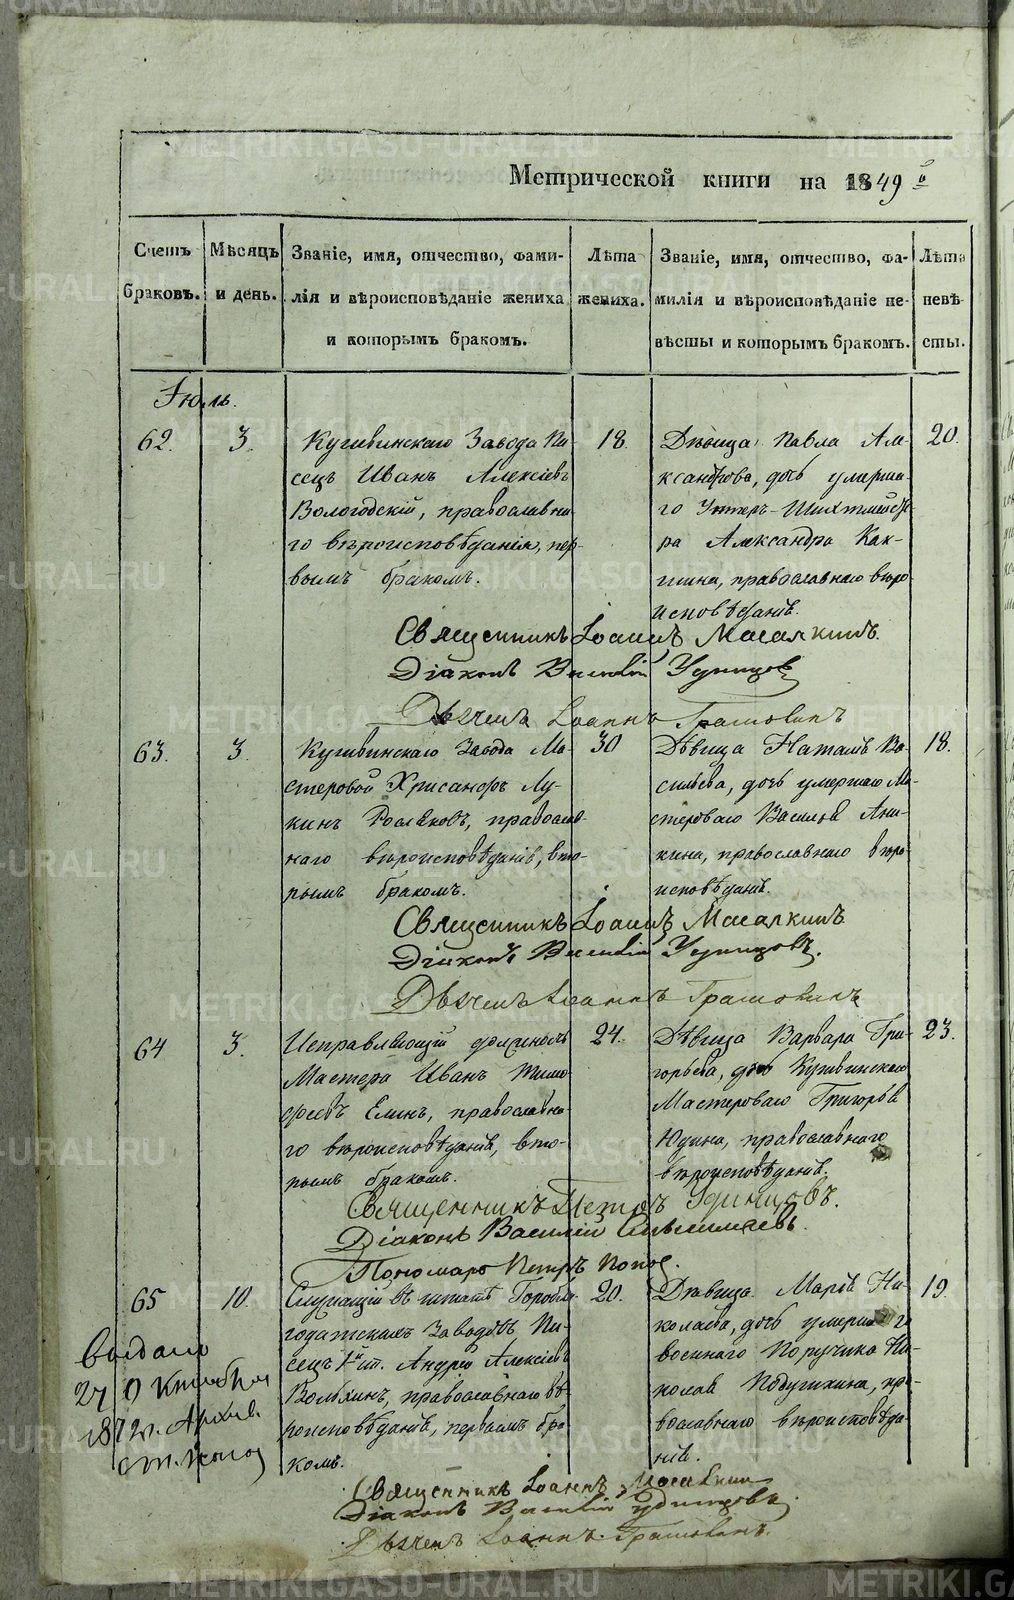 Метрической книги на 1849 го
Счетъ браковъ.
Мѣсяцъ и день.
Званіе, имя, отчество, фами-
лія и вѣроисповѣданіе жениха
и которымъ бракомъ.
Лѣта жениха.
Званіе, имя, отчество, фа-
милія и вѣроисповѣданіе не-
вѣсты и которымъ бракомъ.
Лѣта невѣ-
сты.
Іюль.
62. 3.
Кушвинскаго Завода Пи-
сецъ Иванъ Алексѣевъ
Вологодскій, православна-
го вѣроисповѣданія, пер-
вымъ бракомъ.
18.
Дѣвица Павла Але-
ксандрова, дочь умерша-
го Унтеръ-Шихтмейсте-
ра Александра Как-
шина, православнаго вѣро
исповѣданія.
20.
Священникъ Іоаннъ Масалкинъ
Діаконъ Василій Удинцовъ
Дьячекъ Іоаннъ
63. 3.
Кушвинскаго Завода Ма-
стеровой Хрисанфъ Лу-
кинъ Росляковъ, православ-
наго вѣроисповѣданія, вто-
рымъ бракомъ.
30
Дѣвица Наталья Ва-
сильева, дочь умершаго Ма-
стероваго Василья Ани-
кина, православнаго вѣро-
исповѣданія.
18.
Священникъ Іоаннъ Масалкинъ
Діаконъ Василій Удинцовъ.
Дьячекъ Іоаннъ
64 3.
Исправляющій должность
Мастера Иванъ Тимо-
феевъ Елинъ, православна-
го вѣроисповѣданія, вто-
рымъ бракомъ.
24.
Дѣвица Варвара Гри-
горьева, дочь Кушвинскаго
Мастероваго Григорья
Юдина, православнаго
вѣроисповѣданія.
23.
Священникъ Петръ Удинцовъ.
Діаконъ Василій
Пономарь Петръ Поповъ.
65 10.
Служащій въ штатѣ Горобла-
годатскихъ Заводовъ Пи-
сецъ 1й ст. Андрей Алексѣевъ
Волыхинъ, православнаго вѣ-
роисповѣданія, первымъ бра-
комъ.
20.
Дѣвица Марья Ни-
колаева, дочь умершаго
военнаго Поручика Ни-
колая Подушкина, пра-
вославнаго вѣроисповѣда-
нія.
19.
Выдано
27 Октября
1872г. Архив.
Священникъ Іоаннъ Масалкинъ
Діаконъ Василій Удинцовъ.
Дьячекъ Іоаннъ
METRIKI.GASO-URAL.RU